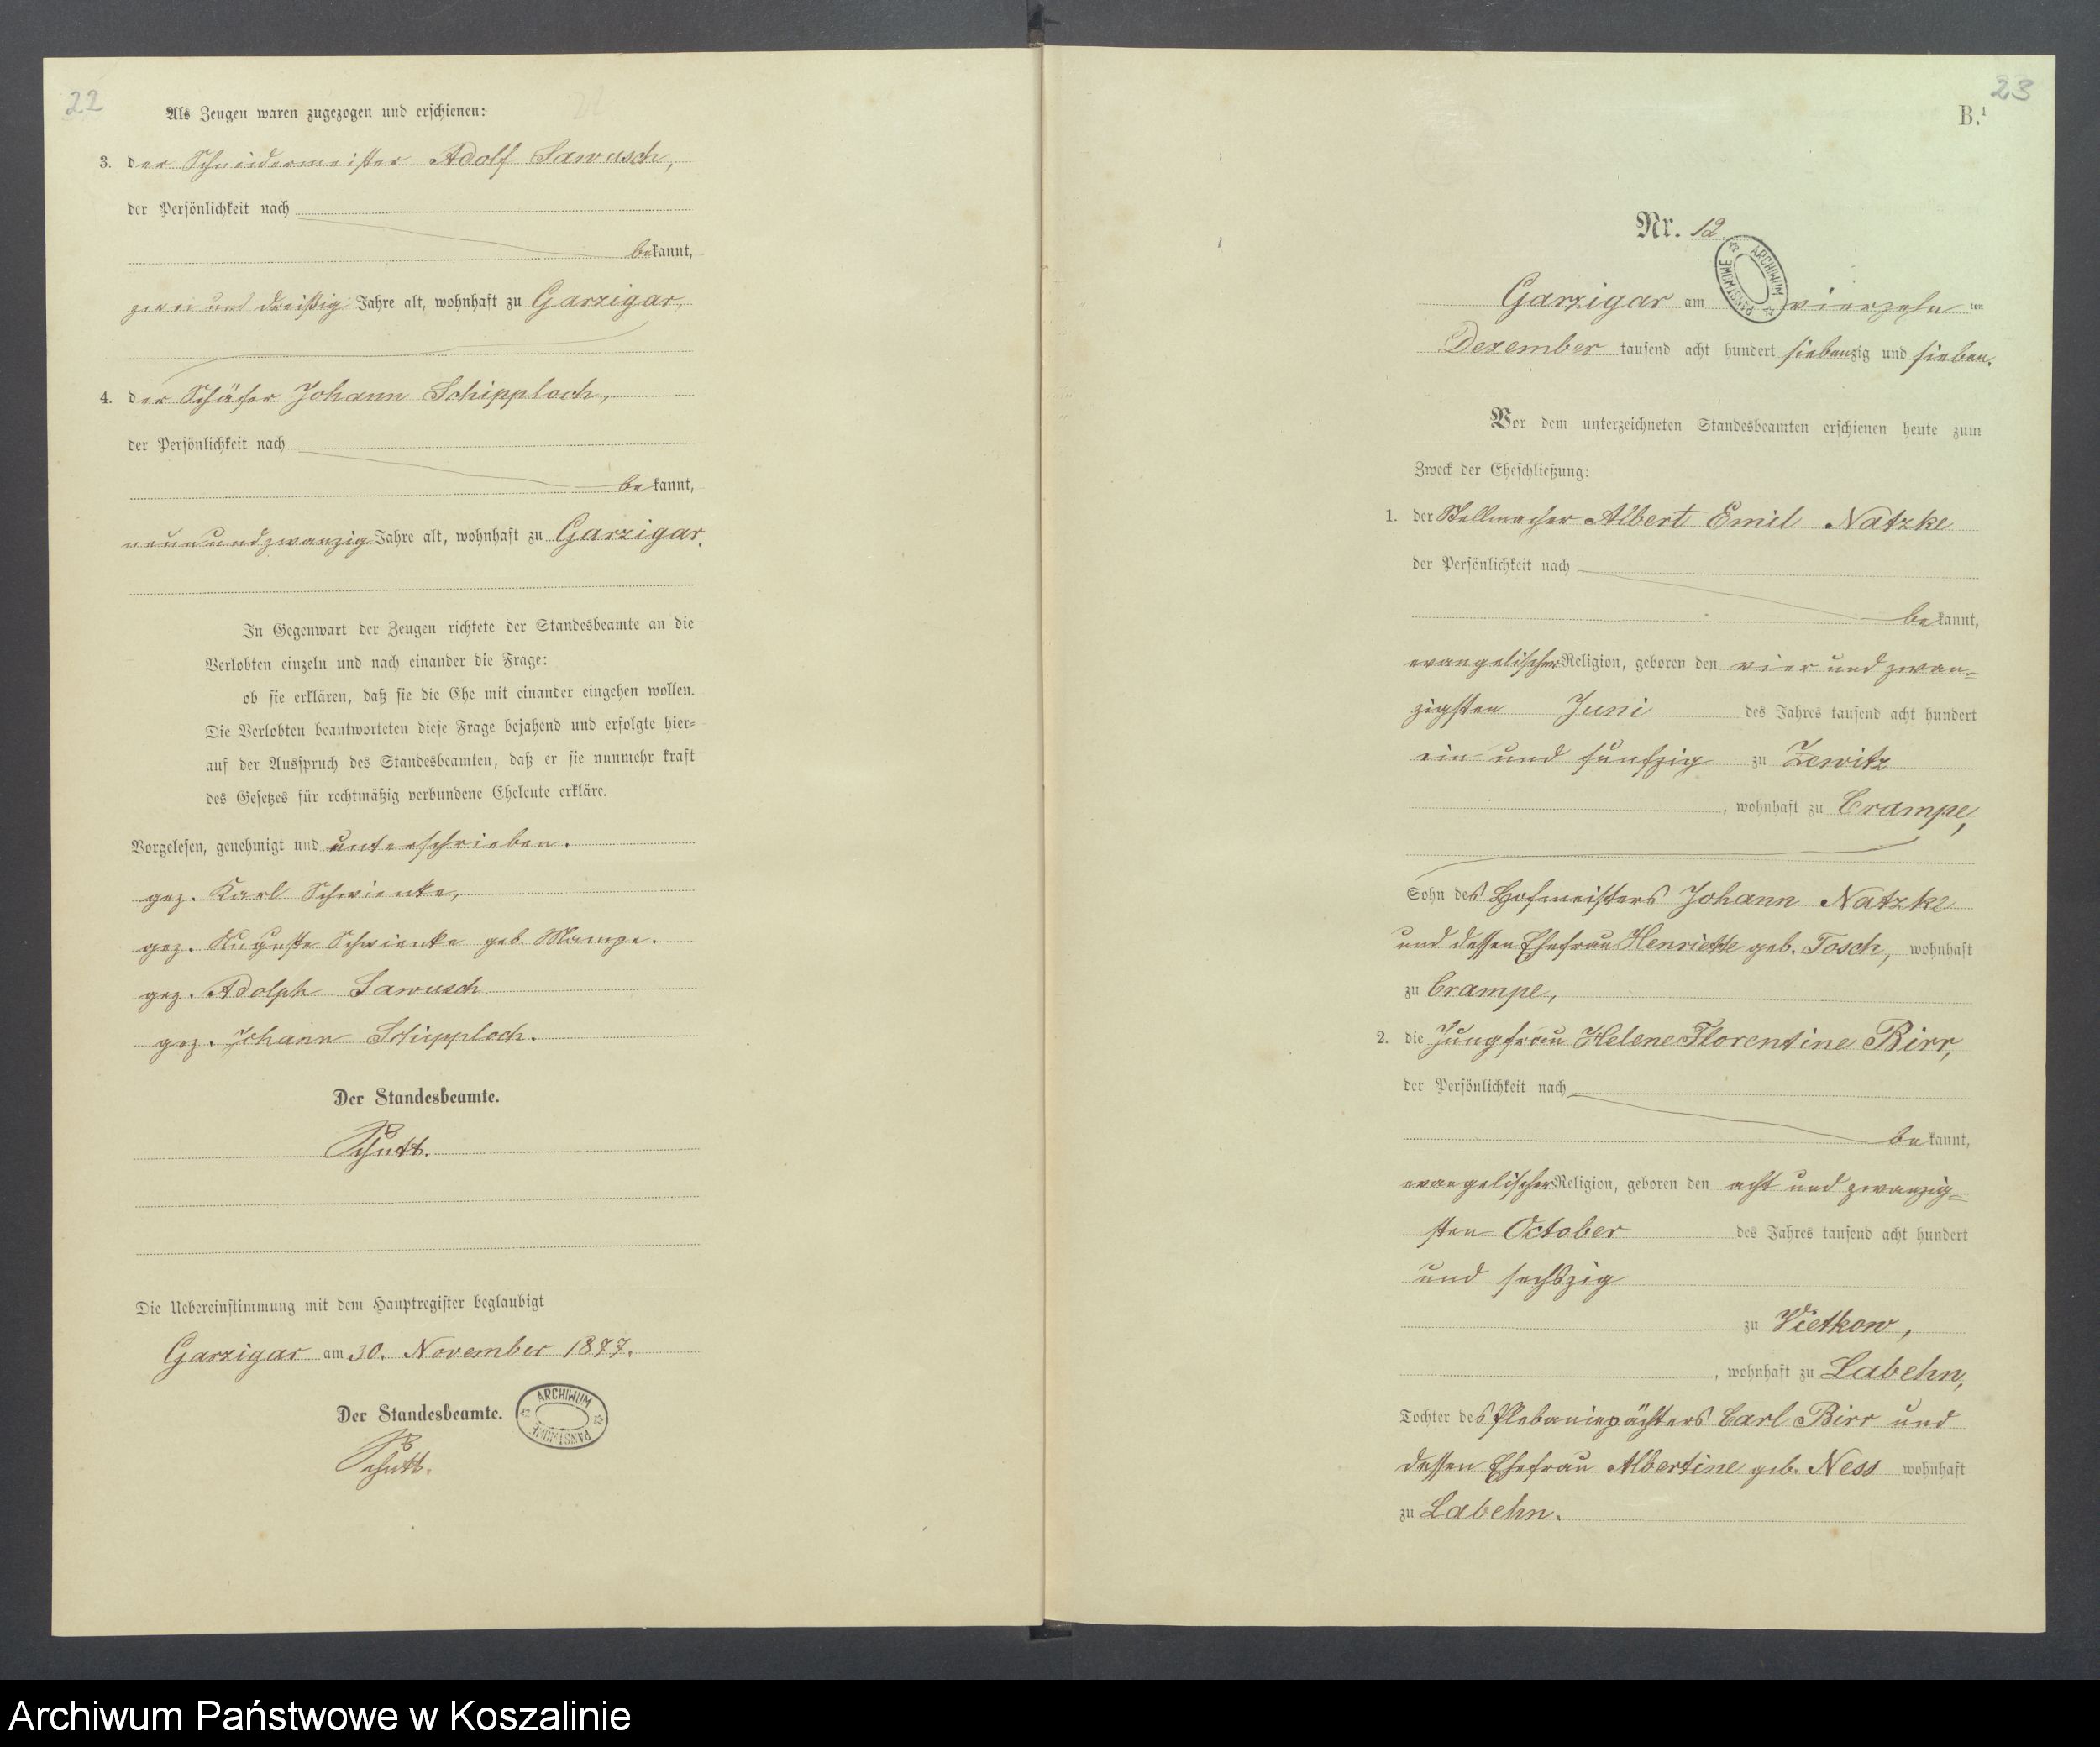 22
Als Zeugen waren zugezogen und erschienen:
3. der Schneidermeister Adolf Lawusch,
der Persönlichkeit nach
bekannt,
zwei und dreißig Jahre alt, wohnhaft zu Garzigar,
4. der Schäfer Johann Schipploch,
der Persönlichkeit nach
bekannt,
neunundzwanzig Jahre alt, wohnhaft zu Garzigar.
In Gegenwart der Zeugen richtete der Standesbeamte an die
Verlobten einzeln und nach einander die Frage:
ob sie erklären, daß sie die Ehe mit einander eingehen wollen.
Die Verlobten beantworteten diese Frage bejahend und erfolgte hier-
auf der Ausspruch des Standesbeamten, daß er sie nunmehr kraft
des Gesetzes für rechtmäßig verbundene Eheleute erkläre.
Vorgelesen, genehmigt und unterschrieben.
gez. Karl Schwienke,
gez. Auguste Schwienke geb. Mampe.
gez. Adolph Lawusch.
gez. Johann Schipploch.
Der Standesbeamte.
Schutt.
Die Uebereinstimmung mit dem Hauptregister beglaubigt
Garzigar am 30. November 1877.
Der Standesbeamte.
ARCHIWUM PAŃSTWOWE
Schutt.
23
B.¹
Nr. 12.
ARCHIWUM PAŃSTWOWE
Garzigar am vierzehn ten
Dezember tausend acht hundert siebenzig und sieben.
Vor dem unterzeichneten Standesbeamten erschienen heute zum
Zweck der Eheschließung:
1. der Stellmacher Albert Emil Natzke
der Persönlichkeit nach
bekannt,
evangelischer Religion, geboren den vier und zwan-
zigsten Juni des Jahres tausend acht hundert
ein und funfzig zu Zewitz
, wohnhaft zu Crampe,
Sohn des Hofmeisters Johann Natzke
und dessen Ehefrau Henriette geb. Tosch, wohnhaft
zu Crampe,
2. die Jungfrau Helene Florentine Birr,
der Persönlichkeit nach
bekannt,
evangelischer Religion, geboren den acht und zwanzig-
sten October des Jahres tausend acht hundert
und sechszig
zu Vietkow,
, wohnhaft zu Labehn,
Tochter des Plebaniepächters Carl Birr und
dessen Ehefrau Albertine geb. Ness wohnhaft
zu Labehn.
Archiwum Państwowe w Koszalinie